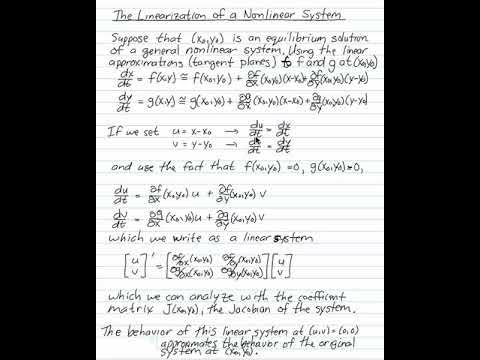 The Linearization of a Nonlinear System
Suppose that (x₀,y₀) is an equilibrium solution
of a general nonlinear system. Using the linear
approximations (tangent planes) to f and g at (x₀,y₀)
dx/dt = f(x,y) ≅ f(x₀,y₀) + ∂f/∂x(x₀,y₀)(x-x₀) + ∂f/∂y(x₀,y₀)(y-y₀)
dy/dt = g(x,y) ≅ g(x₀,y₀) + ∂g/∂x(x₀,y₀)(x-x₀) + ∂g/∂y(x₀,y₀)(y-y₀)
If we set u = x-x₀ → du/dt = dx/dt
v = y-y₀ → dv/dt = dy/dt
and use the fact that f(x₀,y₀) = 0, g(x₀,y₀) = 0,
du/dt = ∂f/∂x(x₀,y₀)u + ∂f/∂y(x₀,y₀)v
dv/dt = ∂g/∂x(x₀,y₀)u + ∂g/∂y(x₀,y₀)v
which we write as a linear system
[u v]' = [∂f/∂x(x₀,y₀) ∂f/∂y(x₀,y₀) ∂g/∂x(x₀,y₀) ∂g/∂y(x₀,y₀)] [u v]
which we can analyze with the coefficient
matrix J(x₀,y₀), the Jacobian of the system.
The behavior of this linear system at (u,v) = (0,0)
approximates the behavior of the original
system at (x₀,y₀).